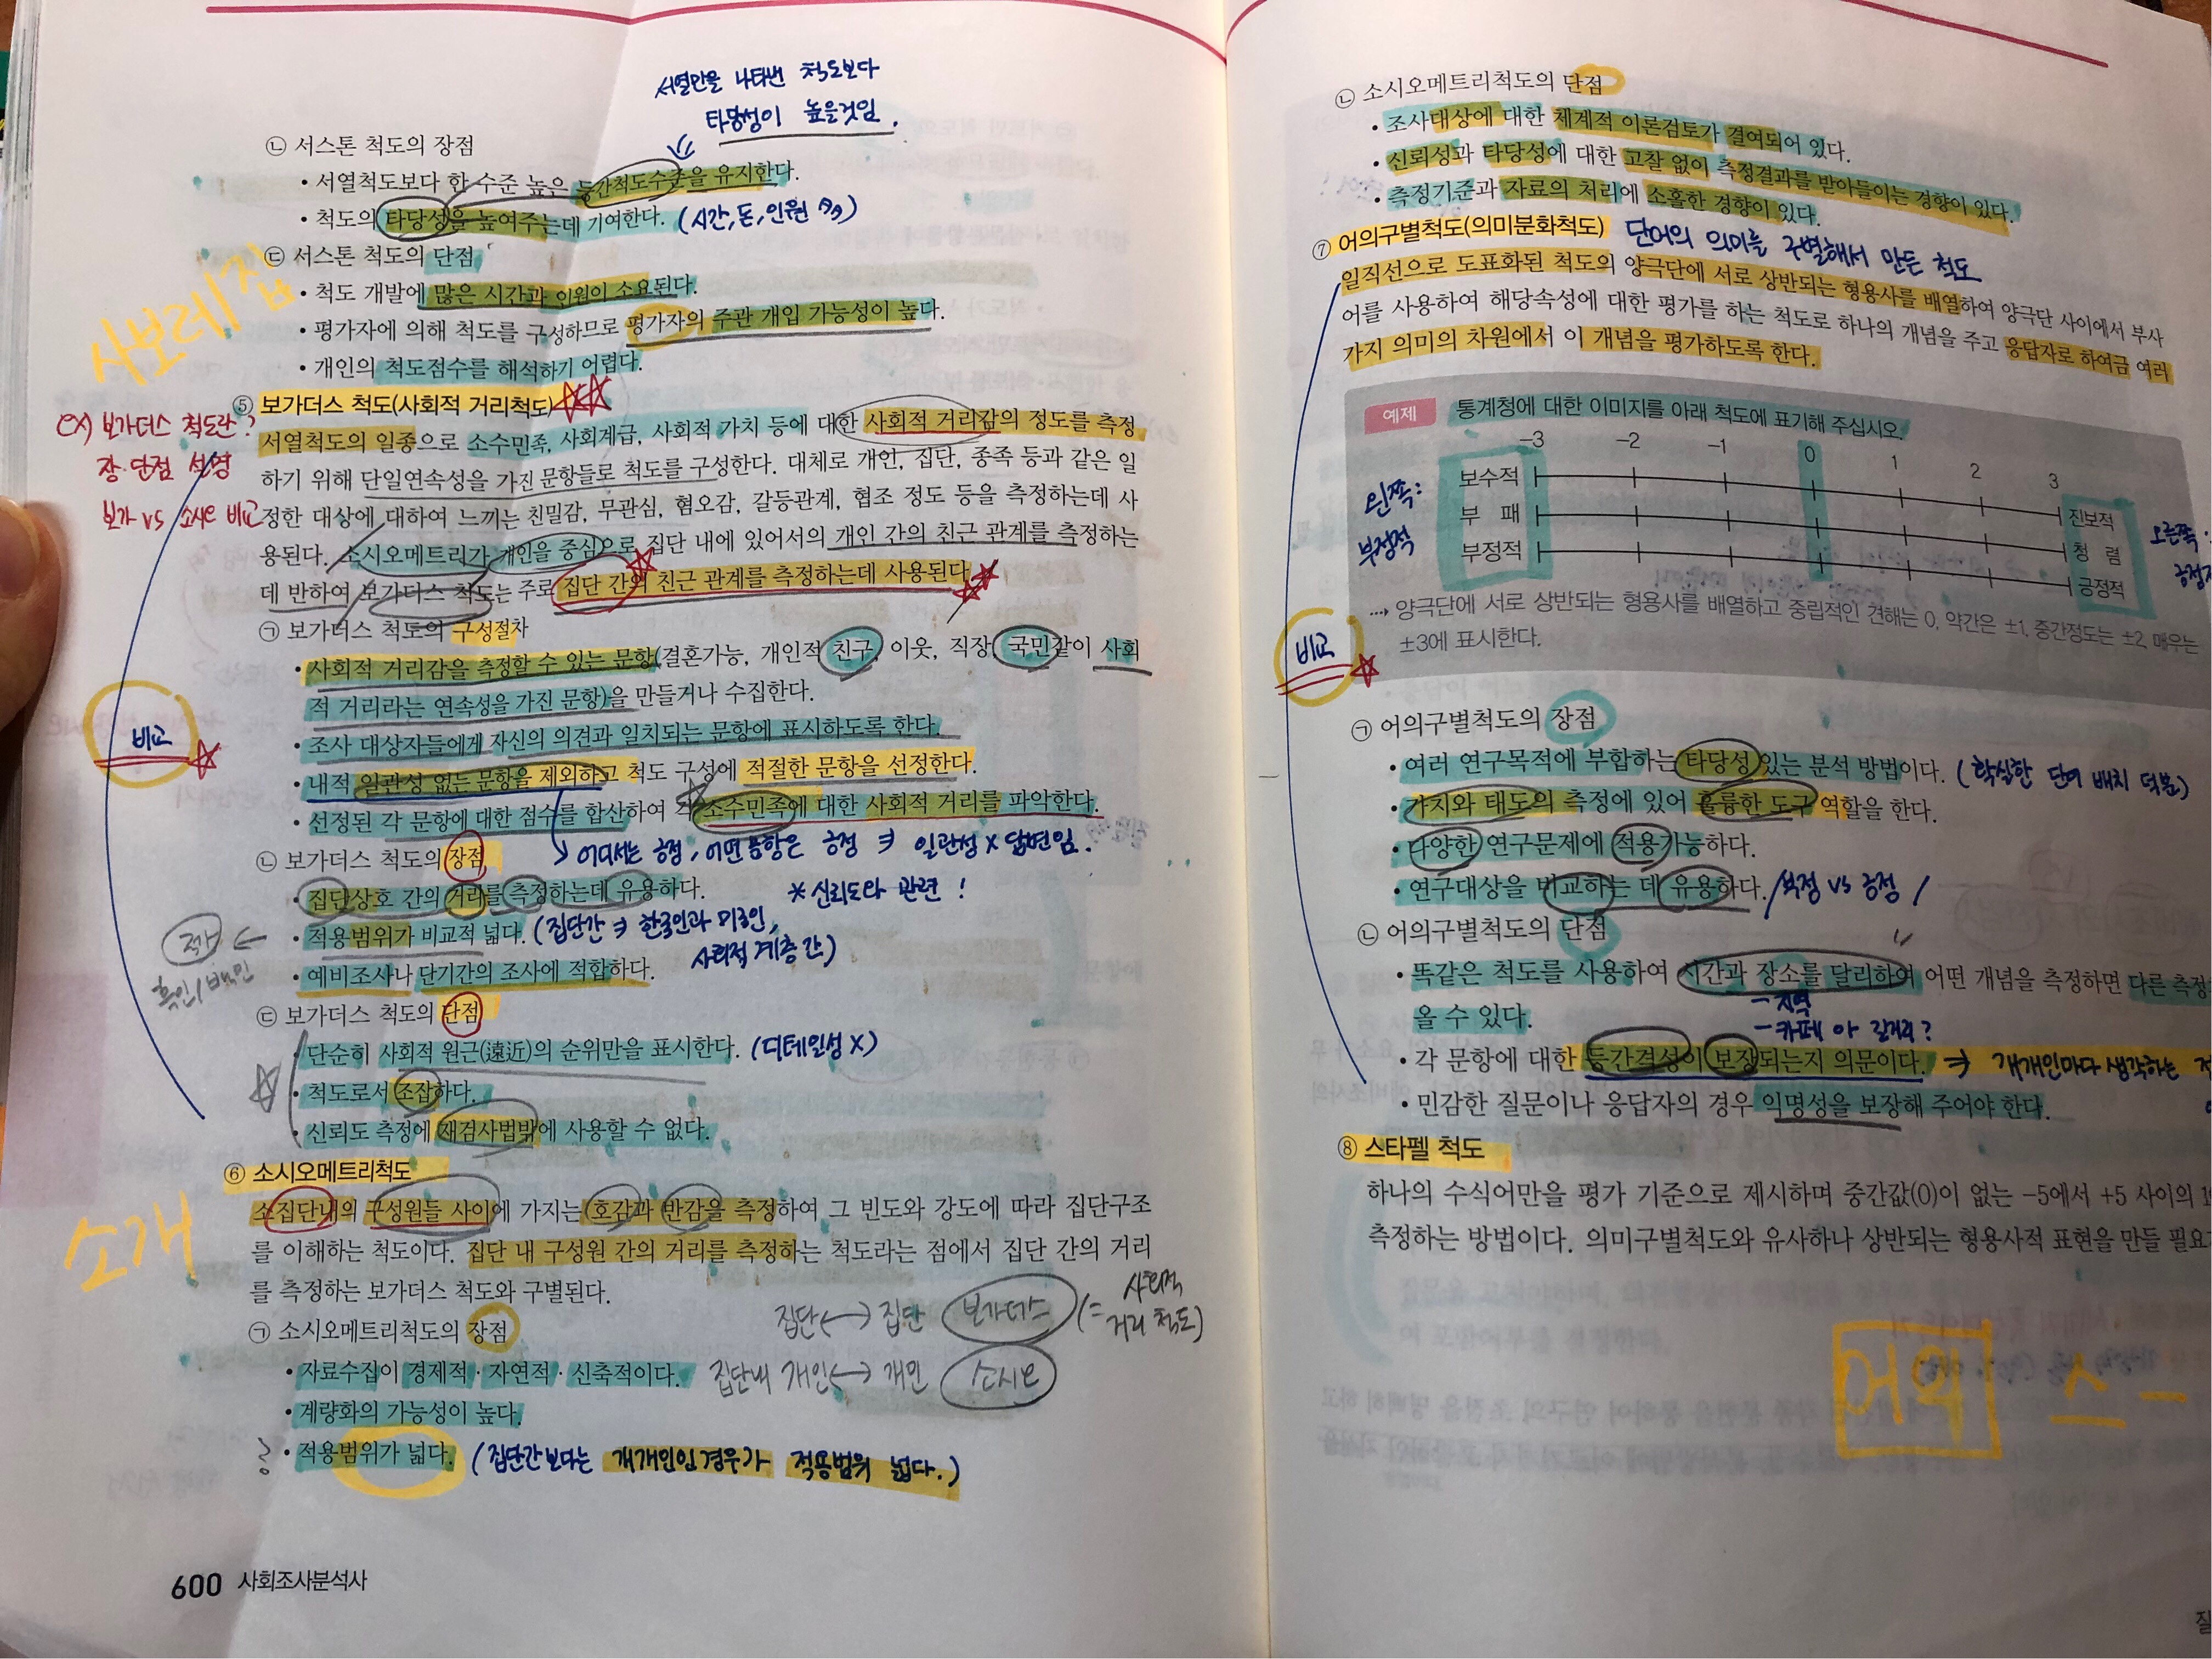 서열만을 나타낸 척도보다
타당성이 높을것임.
㉡ 서스톤 척도의 장점
• 서열척도보다 한 수준 높은 등간척도수준을 유지한다.
• 척도의 타당성을 높여주는데 기여한다. (시간, 돈, 인원 多)
㉢ 서스톤 척도의 단점
• 척도 개발에 많은 시간과 인원이 소요된다.
• 평가자에 의해 척도를 구성하므로 평가자의 주관 개입 가능성이 높다.
• 개인의 척도점수를 해석하기 어렵다.
사보레 집
⑤ 보가더스 척도(사회적 거리척도)
ex) 보가더스 척도란?
장·단점 설명
보가 vs 소시오 비교
서열척도의 일종으로 소수민족, 사회계급, 사회적 가치 등에 대한 사회적 거리감의 정도를 측정
하기 위해 단일연속성을 가진 문항들로 척도를 구성한다. 대체로 개인, 집단, 종족 등과 같은 일
정한 대상에 대하여 느끼는 친밀감, 무관심, 혐오감, 갈등관계, 협조 정도 등을 측정하는데 사
용된다. 소시오메트리가 개인을 중심으로 집단 내에 있어서의 개인 간의 친근 관계를 측정하는
데 반하여 보가더스 척도는 주로 집단 간의 친근 관계를 측정하는데 사용된다.
㉠ 보가더스 척도의 구성절차
• 사회적 거리감을 측정할 수 있는 문항(결혼가능, 개인적 친구, 이웃, 직장, 국민같이 사회
적 거리라는 연속성을 가진 문항)을 만들거나 수집한다.
• 조사 대상자들에게 자신의 의견과 일치되는 문항에 표시하도록 한다.
비교
• 내적 일관성 없는 문항을 제외하고 척도 구성에 적절한 문항을 선정한다.
• 선정된 각 문항에 대한 점수를 합산하여 각 소수민족에 대한 사회적 거리를 파악한다.
어디서는 긍정, 어떤 문항은 긍정 ⇒ 일관성 X 답변임.
㉡ 보가더스 척도의 장점
• 집단상호 간의 거리를 측정하는데 유용하다.
* 신뢰도와 관련!
• 적용범위가 비교적 넓다. (집단간 ⇒ 한국인과 미국인,
사회적 계층 간)
흑인/백인
• 예비조사나 단기간의 조사에 적합하다.
㉢ 보가더스 척도의 단점
• 단순히 사회적 원근(遠近)의 순위만을 표시한다. (디테일성 X)
• 척도로서 조잡하다.
• 신뢰도 측정에 재검사법밖에 사용할 수 없다.
⑥ 소시오메트리척도
소개
소집단내의 구성원들 사이에 가지는 호감과 반감을 측정하여 그 빈도와 강도에 따라 집단구조
를 이해하는 척도이다. 집단 내 구성원 간의 거리를 측정하는 척도라는 점에서 집단 간의 거리
를 측정하는 보가더스 척도와 구별된다.
㉠ 소시오메트리척도의 장점
집단 ↔ 집단 보가더스 (= 사회적
거리 척도)
• 자료수집이 경제적·자연적·신축적이다.
집단내 개인 ↔ 개인 소시오
• 계량화의 가능성이 높다.
• 적용범위가 넓다. (집단간보다는 개개인인경우가 적용범위 넓다.)
600 사회조사분석사
㉡ 소시오메트리척도의 단점
• 조사대상에 대한 체계적 이론검토가 결여되어 있다.
• 신뢰성과 타당성에 대한 고찰 없이 측정결과를 받아들이는 경향이 있다.
• 측정기준과 자료의 처리에 소홀한 경향이 있다.
⑦ 어의구별척도(의미분화척도) 단어의 의미를 구별해서 만든 척도
일직선으로 도표화된 척도의 양극단에 서로 상반되는 형용사를 배열하여 양극단 사이에서 부사
어를 사용하여 해당속성에 대한 평가를 하는 척도로 하나의 개념을 주고 응답자로 하여금 여러
가지 의미의 차원에서 이 개념을 평가하도록 한다.
예제 통계청에 대한 이미지를 아래 척도에 표기해 주십시오.
-3 -2 -1 0 1 2 3
보수적 진보적
부 패 청 렴
부정적 긍정적
왼쪽:
부정적
오른쪽
⋯› 양극단에 서로 상반되는 형용사를 배열하고 중립적인 견해는 0, 약간은 ±1, 중간정도는 ±2, 매우는
±3에 표시한다.
비교
㉠ 어의구별척도의 장점
• 여러 연구목적에 부합하는 타당성 있는 분석 방법이다. (확실한 단어 배치 덕분)
• 가치와 태도의 측정에 있어 훌륭한 도구 역할을 한다.
• 다양한 연구문제에 적용가능하다.
• 연구대상을 비교하는 데 유용하다. / 부정 vs 긍정 /
㉡ 어의구별척도의 단점
• 똑같은 척도를 사용하여 시간과 장소를 달리하여 어떤 개념을 측정하면 다른 측정
올 수 있다.
- 지역
- 카페 or 길거리?
• 각 문항에 대한 등간격성이 보장되는지 의문이다. ⇒ 개개인마다 생각하는
• 민감한 질문이나 응답자의 경우 익명성을 보장해 주어야 한다.
⑧ 스타펠 척도
하나의 수식어만을 평가 기준으로 제시하며 중간값(0)이 없는 -5에서 +5 사이의
측정하는 방법이다. 의미구별척도와 유사하나 상반되는 형용사적 표현을 만들 필요
어의 스